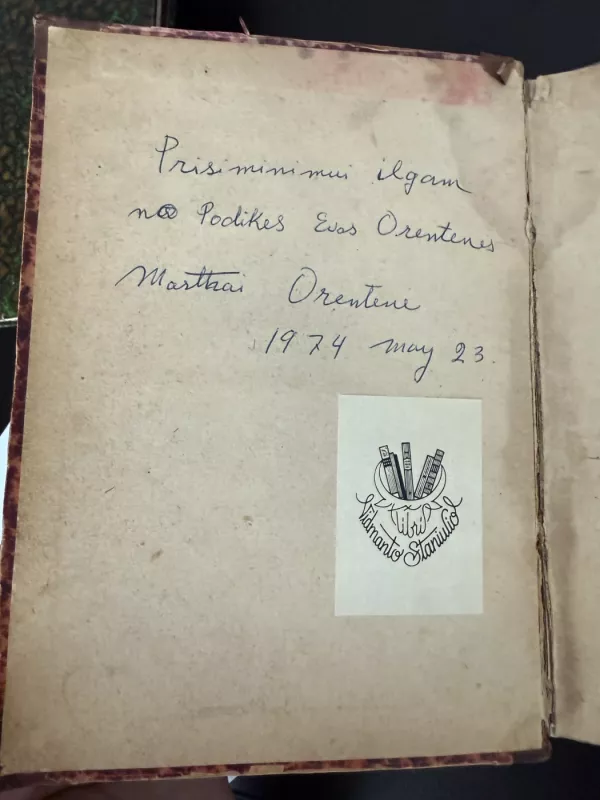 Prisiminimui ilgam
no Podikes Evos Orentenes
Marthai Orentene
1974 may 23.
libri
Vidmanto Staniulio